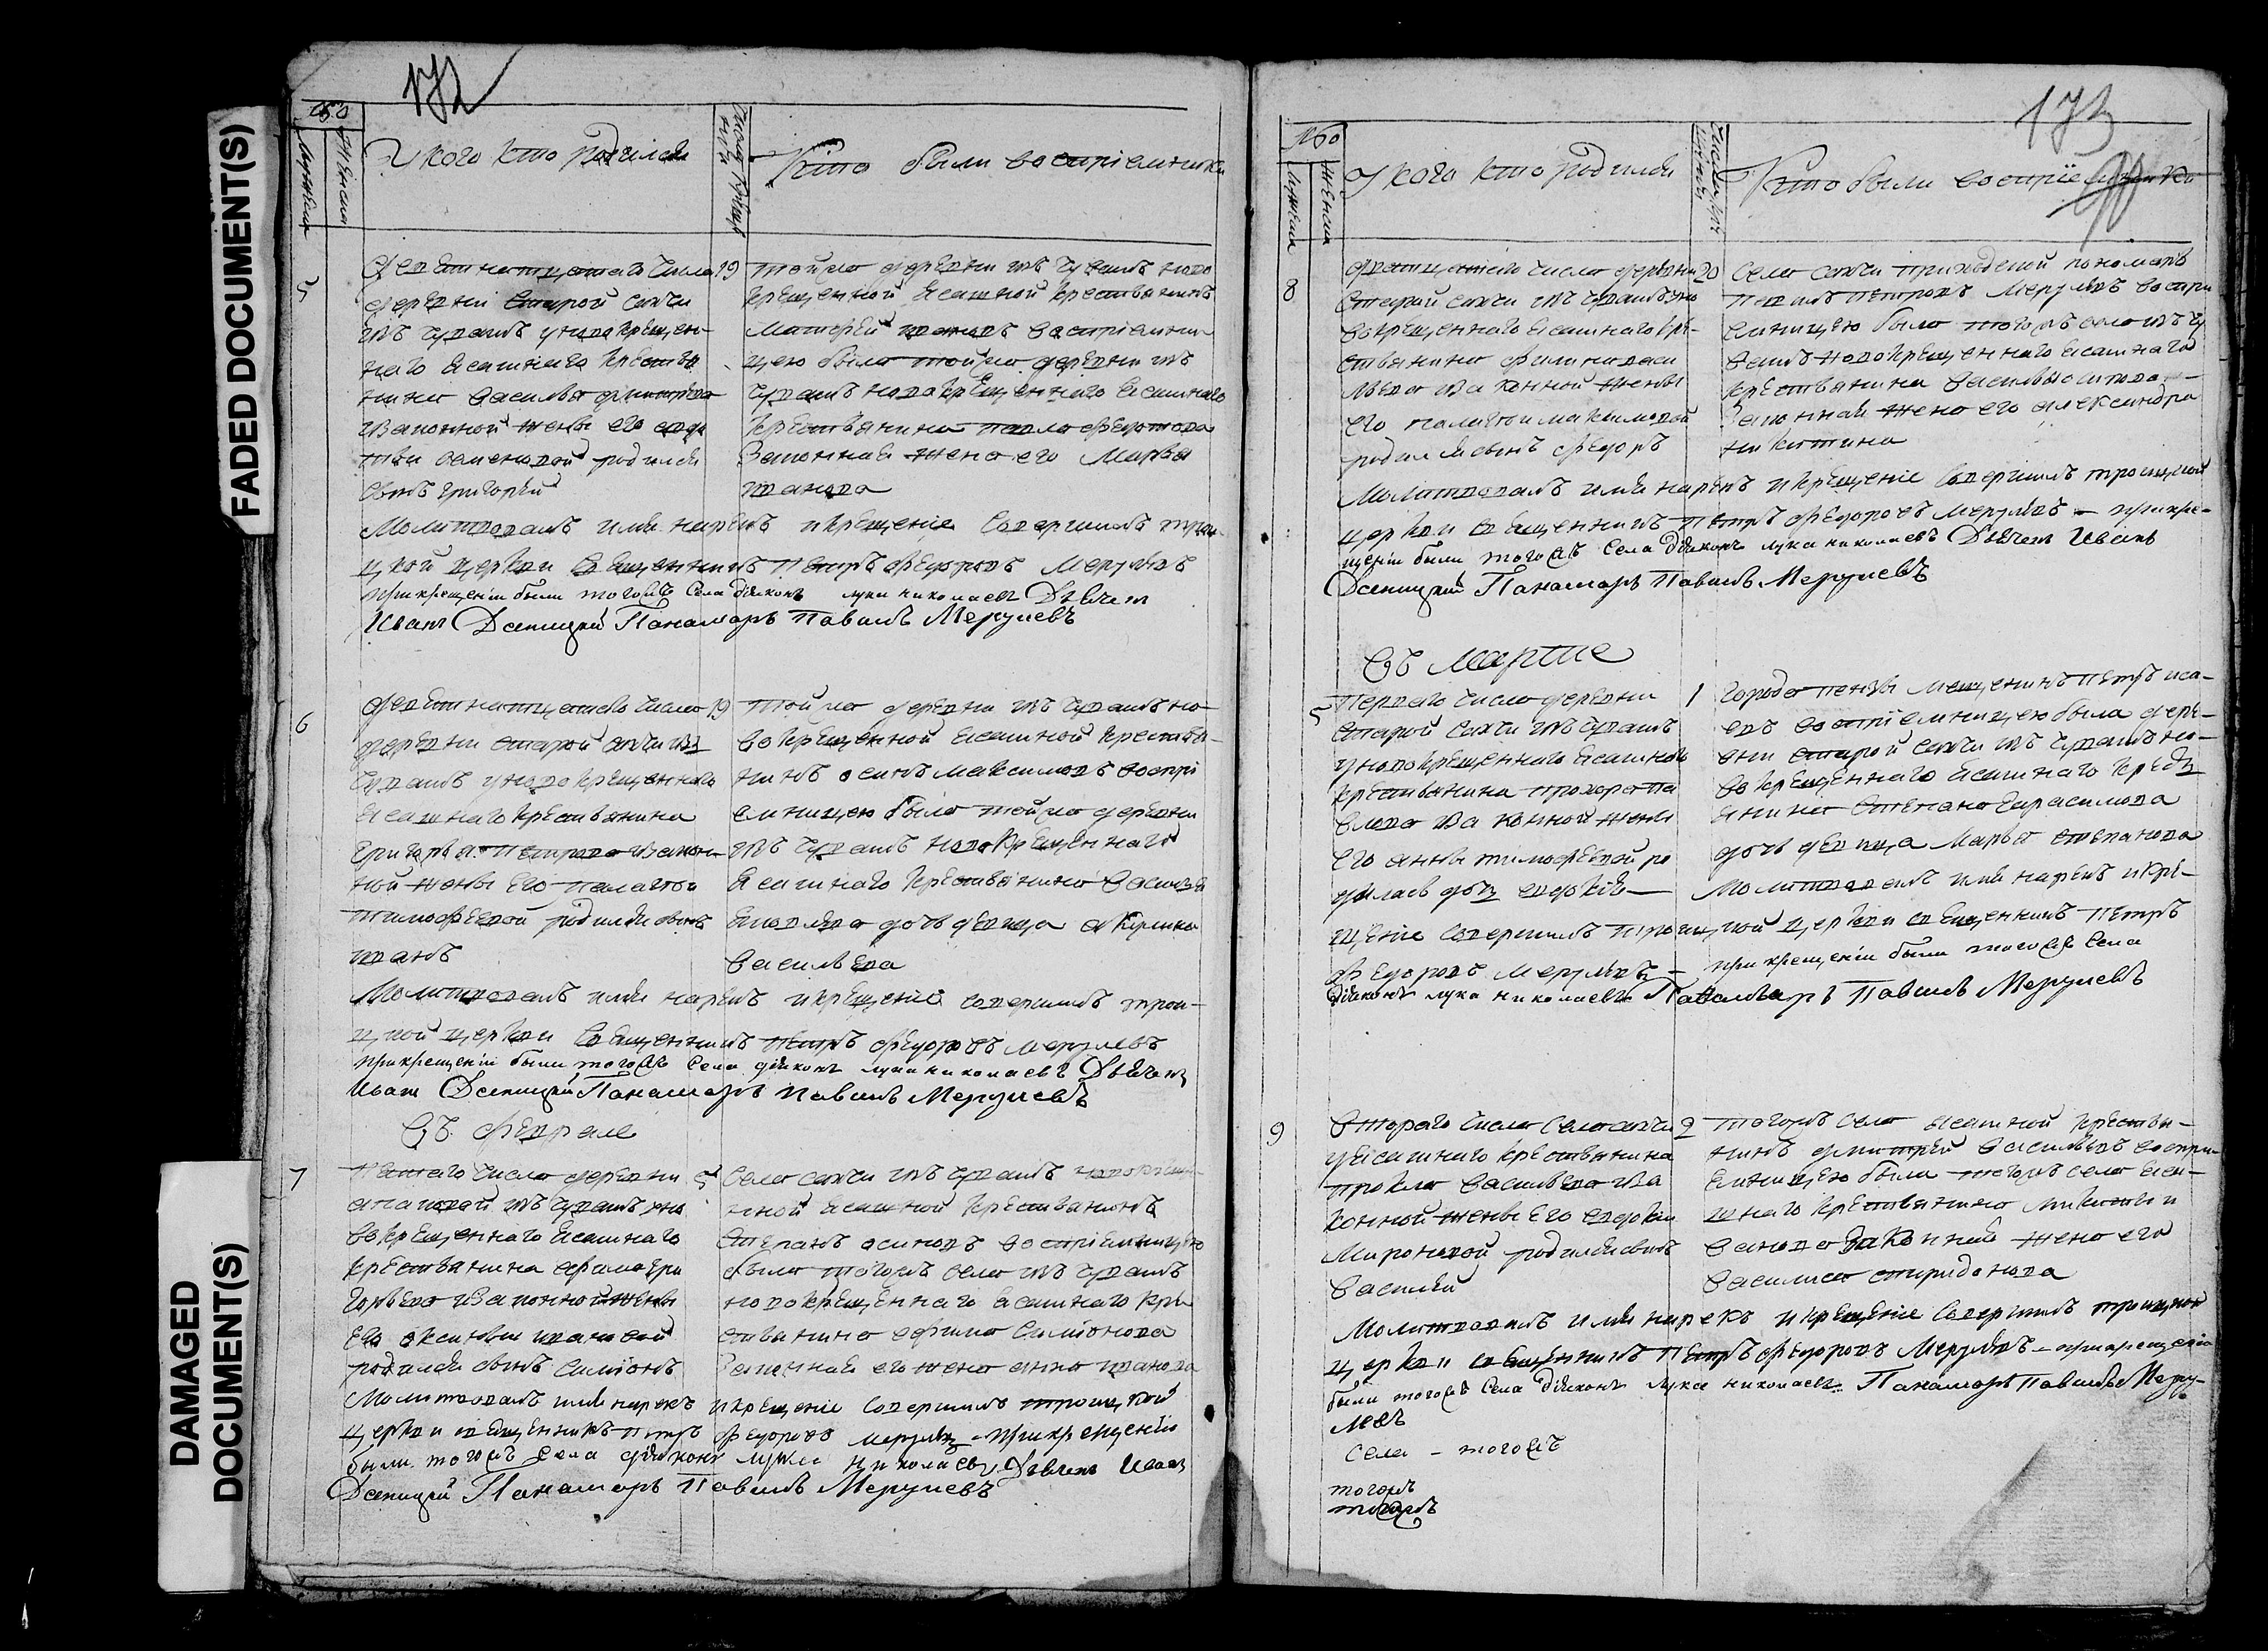 FADED DOCUMENT(S)
DAMAGED DOCUMENT(S)
172
№
Мужеска
Женска
У кого кто родился
Кто были восприемники
5
Девятнатцатаго числа 19
деревни Старой Сахчи
из чуваш у новокрещен-
наго ясашнаго крестья
нина Василья Дмитрева
законной жены его
Семеновой родился
сынъ Григорей
тойже деревни из чувашъ ново
крещенной ясашной крестьянинъ
Матфей Ивановъ восприемни
цею была тойже деревни из
чувашъ новокрещеннаго ясашнаго
крестьянина Павла Федотова
законная жена его Марва
Иванова
Молитвовалъ имя нарекъ и крещение совершилъ трои-
цкой церкви священникъ Петръ Федоровъ Мерулевъ
при крещении были тогожъ села дьяконъ Лука Николаевъ Дьячекъ
Иванъ Панамарь Павилъ Мерулевъ
6
Девятнатцатаго числа 19
деревни Старой Сахчи из
чувашъ у новокрещеннаго
ясашнаго крестьянина
Григорья Петрова закон-
ной жены его Палагеи
Тимофеевой родился сынъ
Иванъ
тойже деревни из чувашъ но-
вокрещенной ясашной крестья-
нинъ Осипъ Максимовъ воспри
емницею была тойже деревни
из чувашъ новокрещеннаго
ясашнаго крестьянина Василья
Яковлева дочь девица Акулина
Васильева
Молитвовалъ имя нарекъ и крещение совершилъ трои-
цкой церкви священникъ Петръ Федоровъ Мерулевъ
при крещении были тогожъ села дьяконъ Лука Николаевъ Дьячекъ
Иванъ Панамарь Павилъ Мерулевъ
Въ феврале
7
Пятаго числа деревни 5
из чувашъ у но
вокрещеннаго ясашнаго
крестьянина Ефима Гри
горьева законной жены
его Оксиньи Ивановой
родился сынъ Симионъ
Села Сахчи из чувашъ новокрещен
ной ясашной крестьянинъ
Степанъ Осиповъ восприемницею
была тогожъ села из чувашъ
новокрещеннаго ясашнаго кре
стьянина Ефима Симионова
законная его жена Анна Иванова
Молитвовалъ имя нарекъ и крещение совершилъ троицкой
церкви священникъ Петръ Федоровъ Мерулевъ при крещении
были тогожъ села дьяконъ Лука Николаевъ Дьячекъ Иванъ
Панамарь Павилъ Мерулевъ
173
№
Мужеска
Женска
У кого кто родился
Кто были восприемники
8
Дватцатаго числа деревни 20
Старой Сахчи из чувашъ у но
вокрещеннаго ясашнаго кре-
стьянина Филипа Васи
льева законной жены
его Палагеи Макимовой
родился сынъ Федоръ
Села Сахчи приходской пономарь
Павилъ Петровъ Мерулевъ воспри
емницею была тогожъ села из чу
вашъ новокрещеннаго ясашнаго
крестьянина Василья Осипова
законная жена его Александра
Никитина
Молитвовалъ имя нарекъ и крещение совершилъ троицкой
церкви священникъ Петръ Федоровъ Мерулевъ - при кре-
щении были тогожъ села дьяконъ Лука Николаевъ Дьячекъ Иванъ
Панамарь Павилъ Мерулевъ
Въ Марте
5
Перваго числа деревни 1
Старой Сахчи из чувашъ
у новокрещеннаго ясашнаго
крестьянина Прохора Па
влова законной жены
его Анны Тимофеевой ро
дилась дочь Евдокия
Города Пензы мещенинъ Петръ Иса-
евъ восприемницею была дере-
вни Старой Сахчи из чувашъ но-
вокрещеннаго ясашнаго крестья
нина Степана Герасимова
дочь девица Марья Степанова
Молитвовалъ имя нарекъ и кре-
щение совершилъ троицкой церкви священникъ Петръ
Федоровъ Мерулевъ - при крещении были тогожъ села
дьяконъ Лука Николаевъ Панамарь Павилъ Мерулевъ
9
Втораго числа села Сахчи 2
у ясашнаго крестьянина
Прокла Васильева за
конной жены его Евдокии
Мироновой родился сынъ
Василей
тогожъ села ясашной крестья-
нинъ Дмитрей Васильевъ воспри
емницею была тогожъ села яса-
шнаго крестьянина Никиты
законная жена его
Василиса Спиридонова
Молитвовалъ имя нарекъ и крещение совершилъ троицкой
церкви священникъ Петръ Федоровъ Мерулевъ - при крещении
были тогожъ села дьяконъ Лука Николаевъ Панамарь Павилъ Меру-
левъ
села - тогожъ
тогожъ
тогожъ